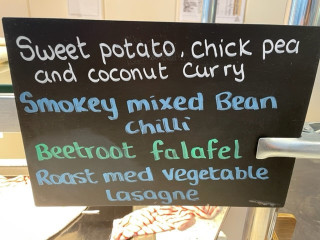 Sweet potato, chick pea
and coconut curry
Smokey mixed Bean
chilli
Beetroot falafel
Roast med vegetable
Lasagne